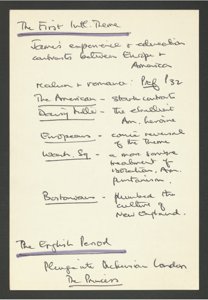 The First Intl. Theme
James's experience & education
contrasts between Europe &
America
Realism & romance: Pref P32
The American - stark contrasts
Daisy Miller - the ebullient
Am. heroine
Europeans - comic reversal
of the Theme
Wash. Sq. - a more sombre
treatment of
isolation, Am.
puritanism.
Bostonians - plumbed the
culture of
New England.
The English Period
Plunge into Dickensian London
The Princess